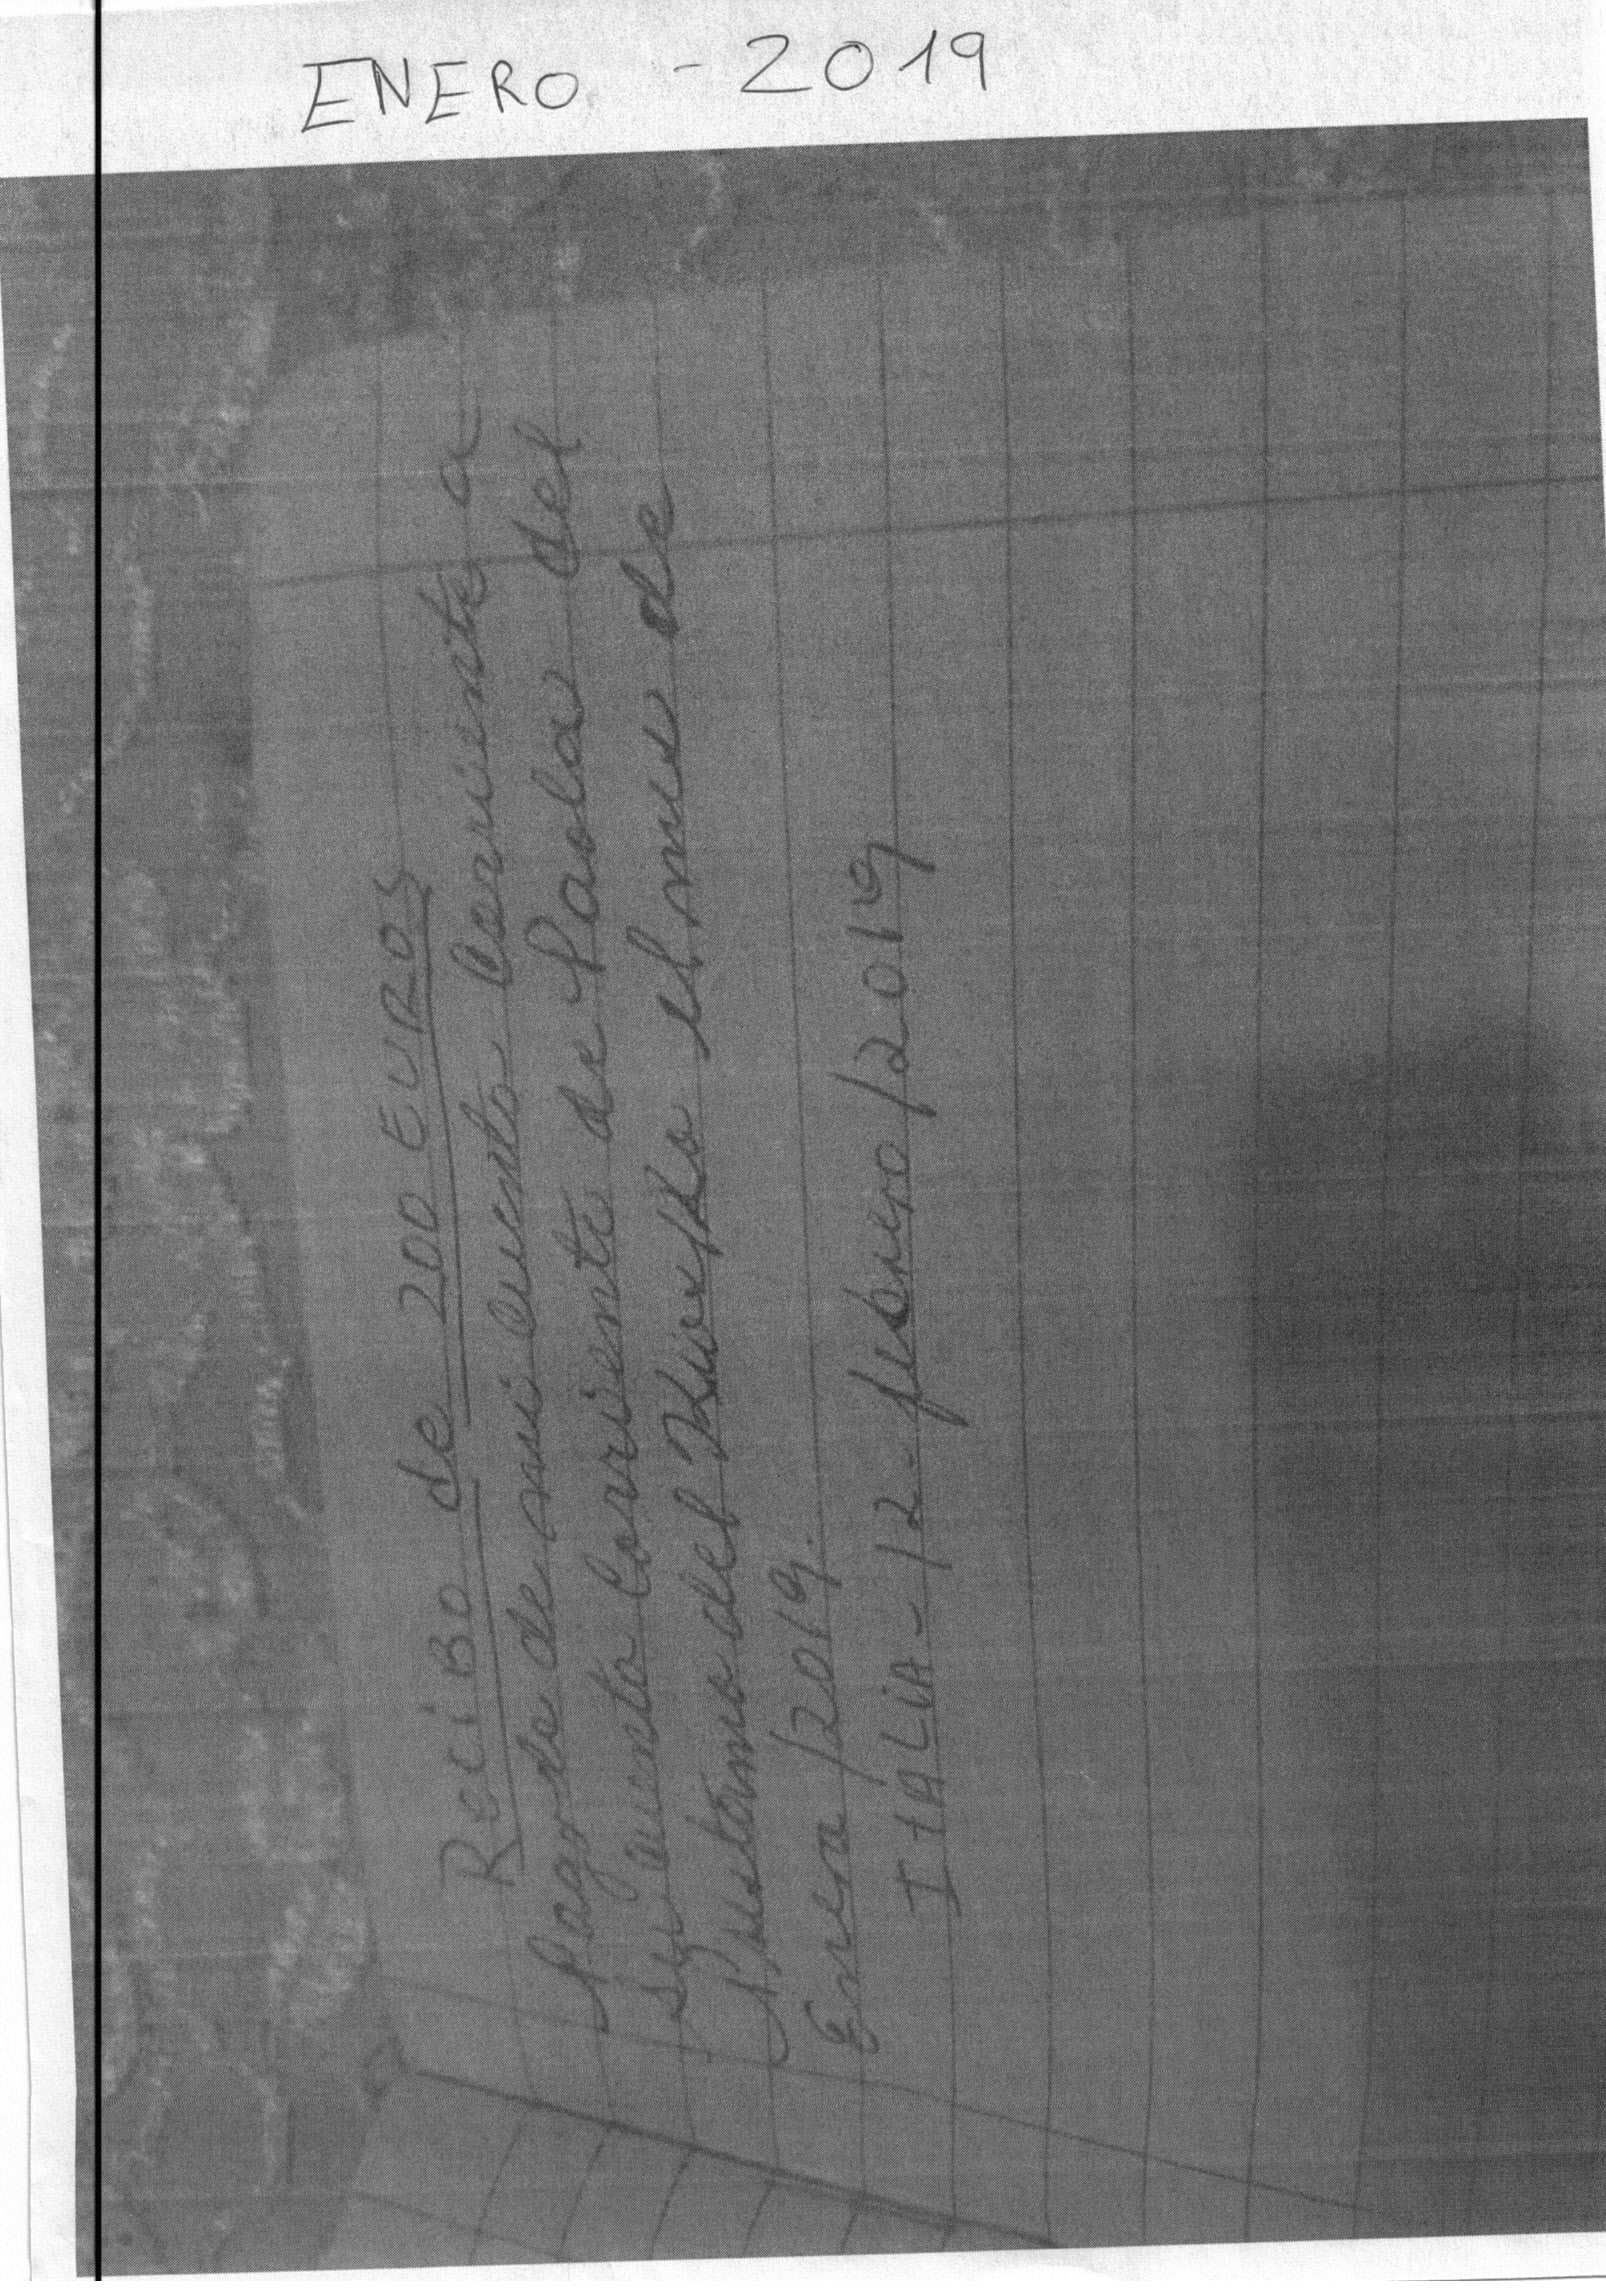 ENERO - 2019
ReciBo de 200 EUROS
Pago de de mi cuenta Corriente a
su cuenta Corriente de Paola del
Prestamo del Kiosko el mes de
Enero/2019.
ITALIA - 12 - febrero/2019